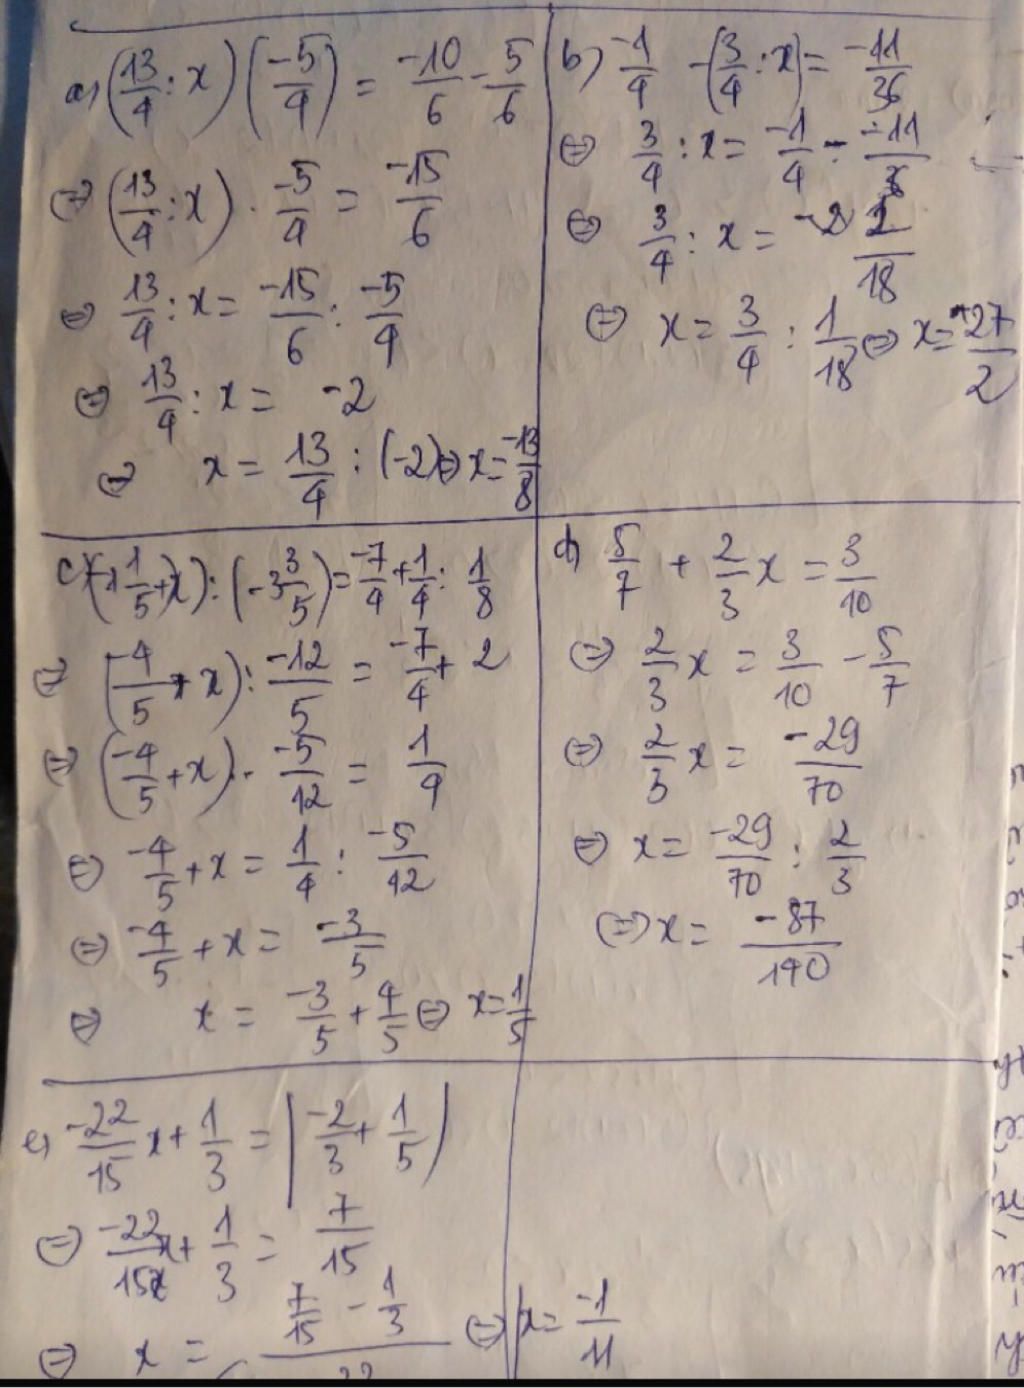 a) (13/4 : x) (-5/4) = -10/6 - 5/6
⇔ (13/4 : x) . -5/4 = -15/6
⇔ 13/4 : x = -15/6 : -5/4
⇔ 13/4 : x = -2
⇔ x = 13/4 : (-2) ⇔ x = -13/8
b) -1/4 - (3/4 : x) = -11/36
⇔ 3/4 : x = -1/4 - -11/36
⇔ 3/4 : x = 1/18
⇔ x = 3/4 : 1/18 ⇔ x = 27/2
c) (-1 1/5 + x) : (-3 3/5) = -7/4 + 1/4 : 1/8
⇔ (-4/5 + x) : -12/5 = -7/4 + 2
⇔ (-4/5 + x) . -5/12 = 1/4
⇔ -4/5 + x = 1/4 : -5/12
⇔ -4/5 + x = -3/5
⇔ x = -3/5 + 4/5 ⇔ x = 1/5
d) 5/7 + 2/3 x = 3/10
⇔ 2/3 x = 3/10 - 5/7
⇔ 2/3 x = -29/70
⇔ x = -29/70 : 2/3
⇔ x = -87/140
e) -22/15 x + 1/3 = | -2/3 + 1/5 |
⇔ -22/15 x + 1/3 = 7/15
⇔ x = 7/15 - 1/3 ⇔ x = -1/11